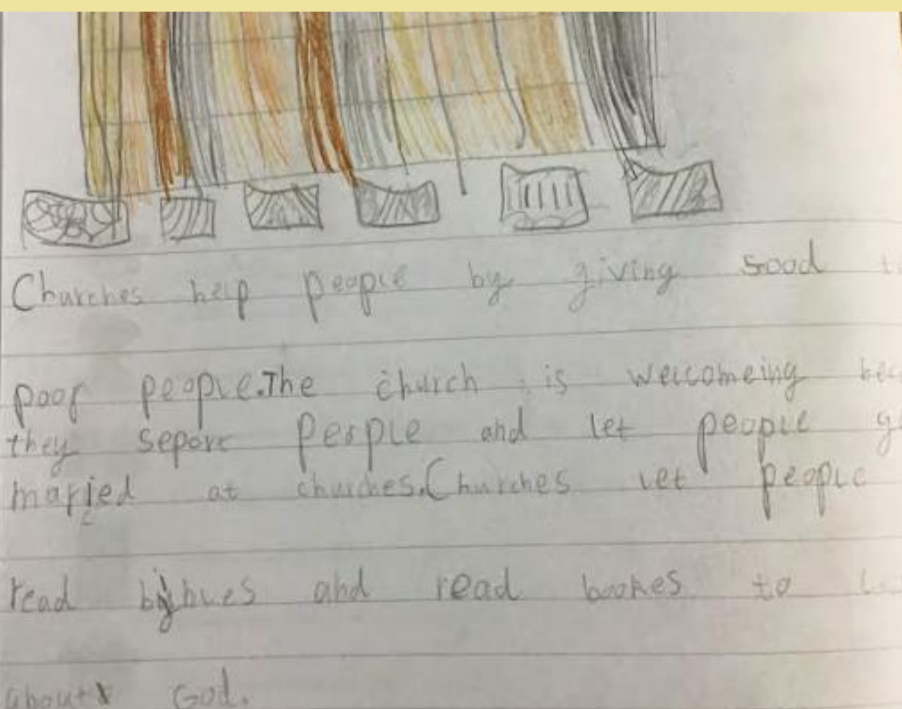 Churches help people by giving sood
poor people.The church is welcomeing bec
they sepore people and let people g
maried at churches.Churches let people
read bibules and read bookes to
about God.